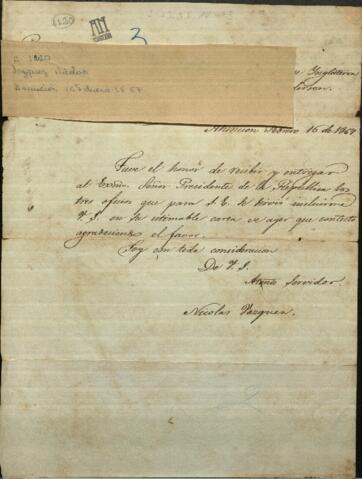 (120)
3
1920
Inglaterra
Asuncion Enero 16 de 1857
Tuve el honór de recibir y entregar
al Exmo. Señor Presidente de la Republica los
tres oficios que para S. E. se sirvió incluirme
V. S. en su estimable carta de ayer que contesto
agradeciendo el favor.
Soy con toda consideracion
De V. S.
Atento Servidor.
Nicolas Vazquez.